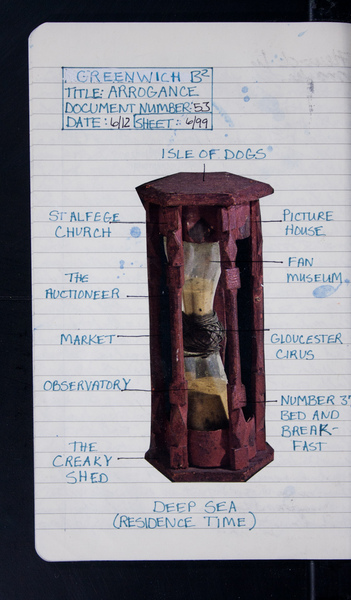 GREENWICH B²
TITLE: ARROGANCE
DOCUMENT NUMBER: 53
DATE: 6/12 SHEET: 6/99
ISLE OF DOGS
ST ALFEGE
CHURCH
PICTURE
HOUSE
FAN
MUSEUM
THE
AUCTIONEER
MARKET
GLOUCESTER
CIRUS
OBSERVATORY
NUMBER 37
BED AND
BREAK-
FAST
THE
CREAKY
SHED
DEEP SEA
(RESIDENCE TIME)